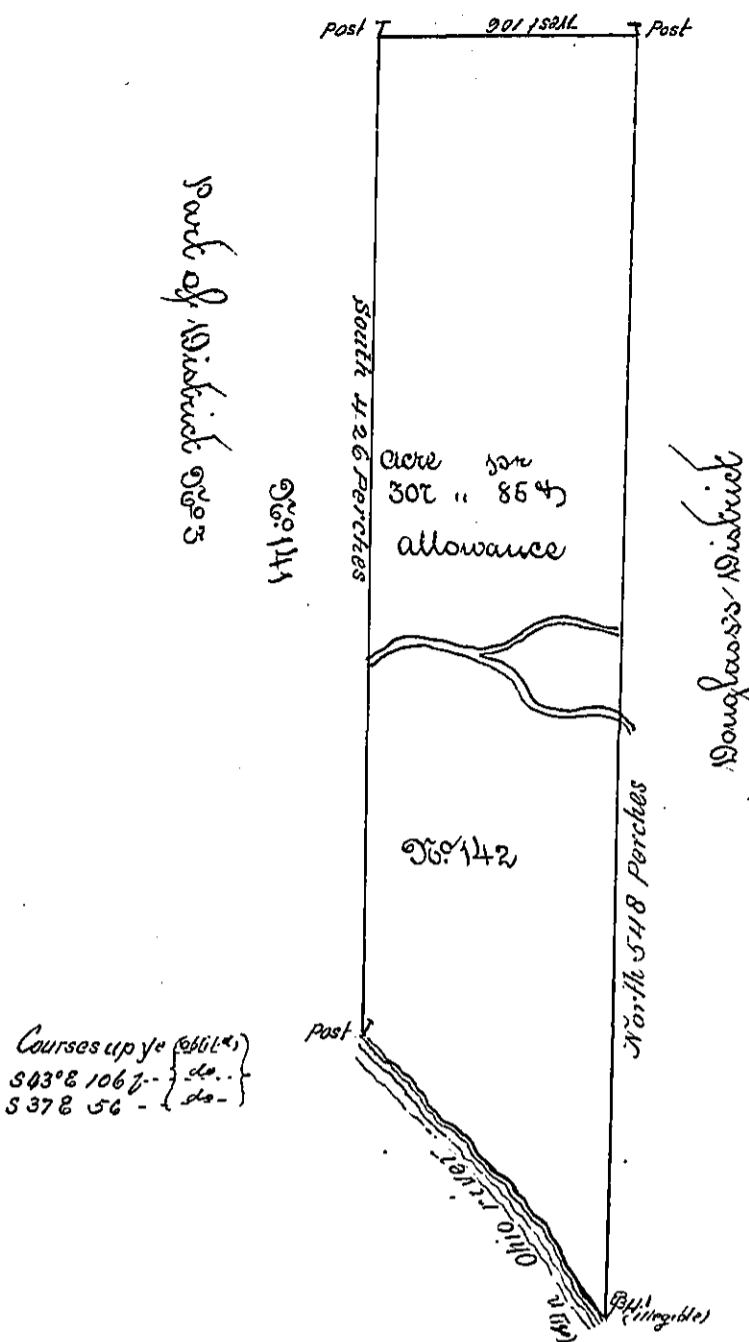 Post
West 106
Post
Part of District No. 3
South 426 Perches
No. 141
acre per
302 " 85 &
allowance
Douglass's District
No. 142
North 548 Perches
Courses up ye (oblit'd)
S 43° E 106 p -- do --
S 37 E 56 - - do -
Post
Ohio river
B.H.
(illegible)